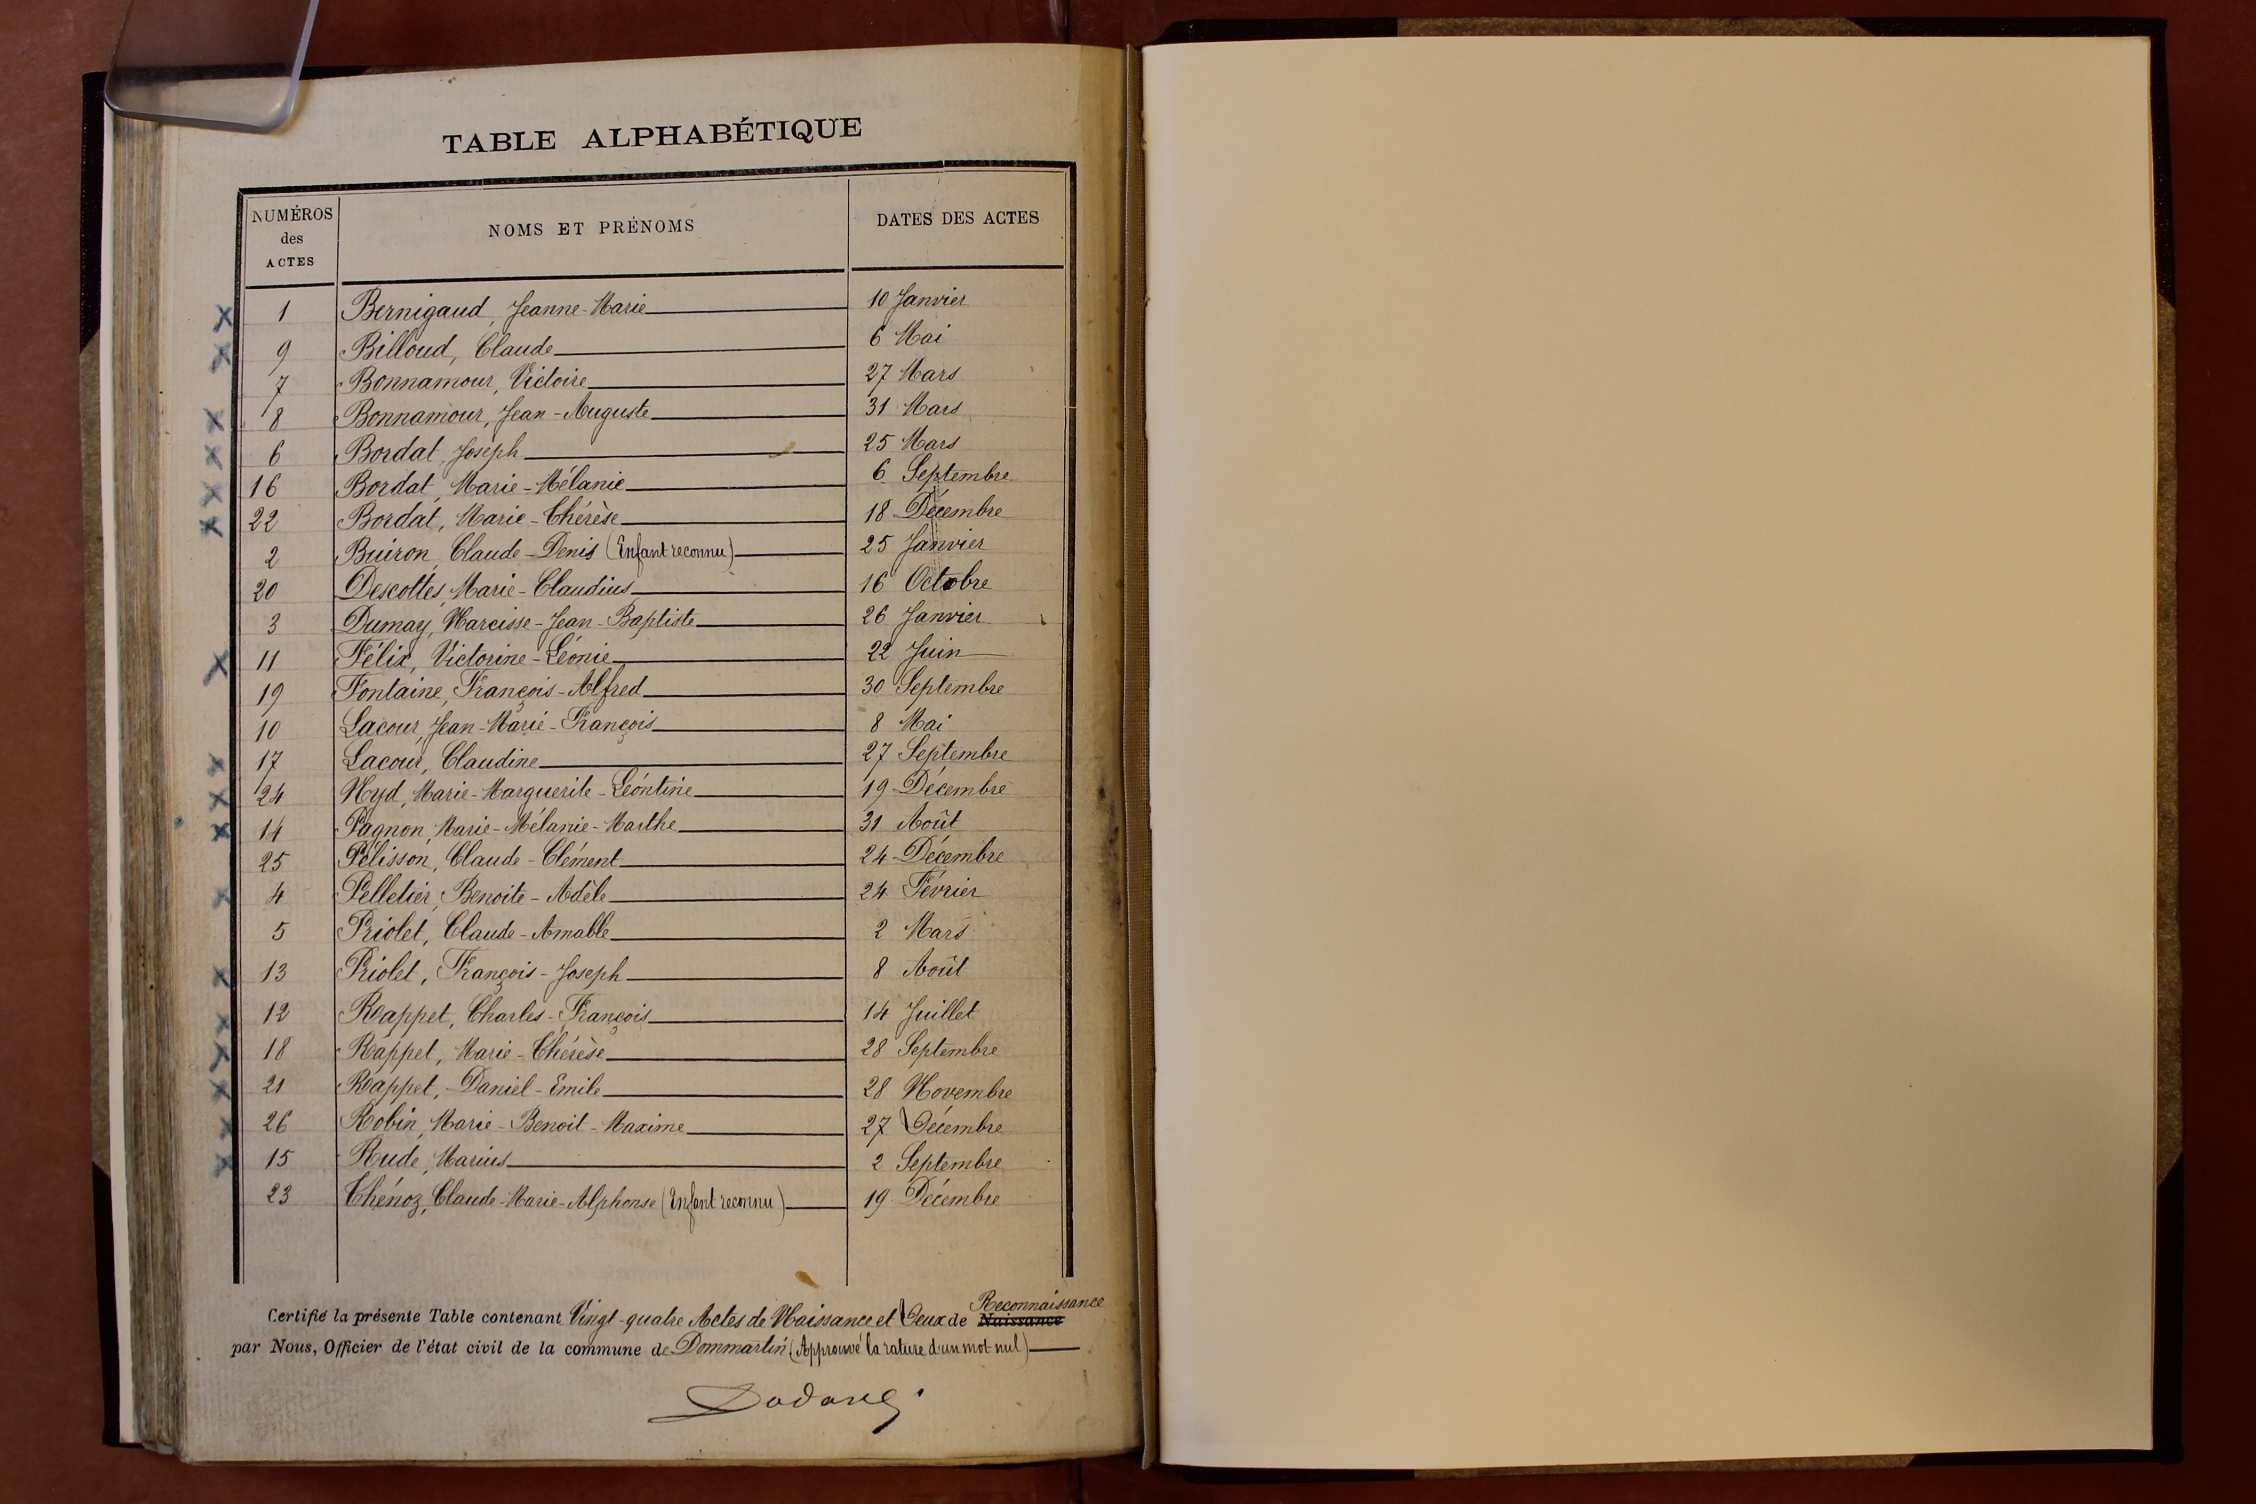 TABLE ALPHABÉTIQUE
NUMÉROS des ACTES NOMS ET PRÉNOMS DATES DES ACTES
1 Bernigaud, Jeanne-Marie 10 Janvier
9 Billoud, Claude 6 Mai
7 Bonnamour, Victoire 27 Mars
8 Bonnamour, Jean-Auguste 31 Mars
6 Bordat, Joseph 25 Mars
16 Bordat, Marie-Mélanie 6 Septembre
22 Bordat, Marie-Thérèse 18 Décembre
2 Buiron, Claude-Denis (Enfant reconnu) 25 Janvier
20 Descottes, Marie-Claudius 16 Octobre
3 Dumay, Narcisse-Jean-Baptiste 26 Janvier
11 Félix, Victorine-Léonie 22 Juin
19 Fontaine, François-Alfred 30 Septembre
10 Lacour, Jean-Marie-François 8 Mai
17 Lacour, Claudine 27 Septembre
24 Nyd, Marie-Marguerite-Léontine 19 Décembre
14 Pagnon, Marie-Mélanie-Marthe 31 Août
25 Pélisson, Claude-Clément 24 Décembre
4 Pelletier, Benoite-Adèle 24 Février
5 Priolet, Claude-Amable 2 Mars
13 Priolet, François-Joseph 8 Août
12 Rappet, Charles-François 14 Juillet
18 Rappet, Marie-Thérèse 28 Septembre
21 Rappet, Daniel-Emile 28 Novembre
26 Robin, Marie-Benoit-Maxime 27 Décembre
15 Rude, Marius 2 Septembre
23 Thénoz, Claude-Marie-Alphonse (Enfant reconnu) 19 Décembre
Reconnaissance
Certifié la présente Table contenant Vingt-quatre Actes de Naissance et Deux de Naissance
par Nous, Officier de l'état civil de la commune de Dommartin (Approuvé la rature d'un mot nul)